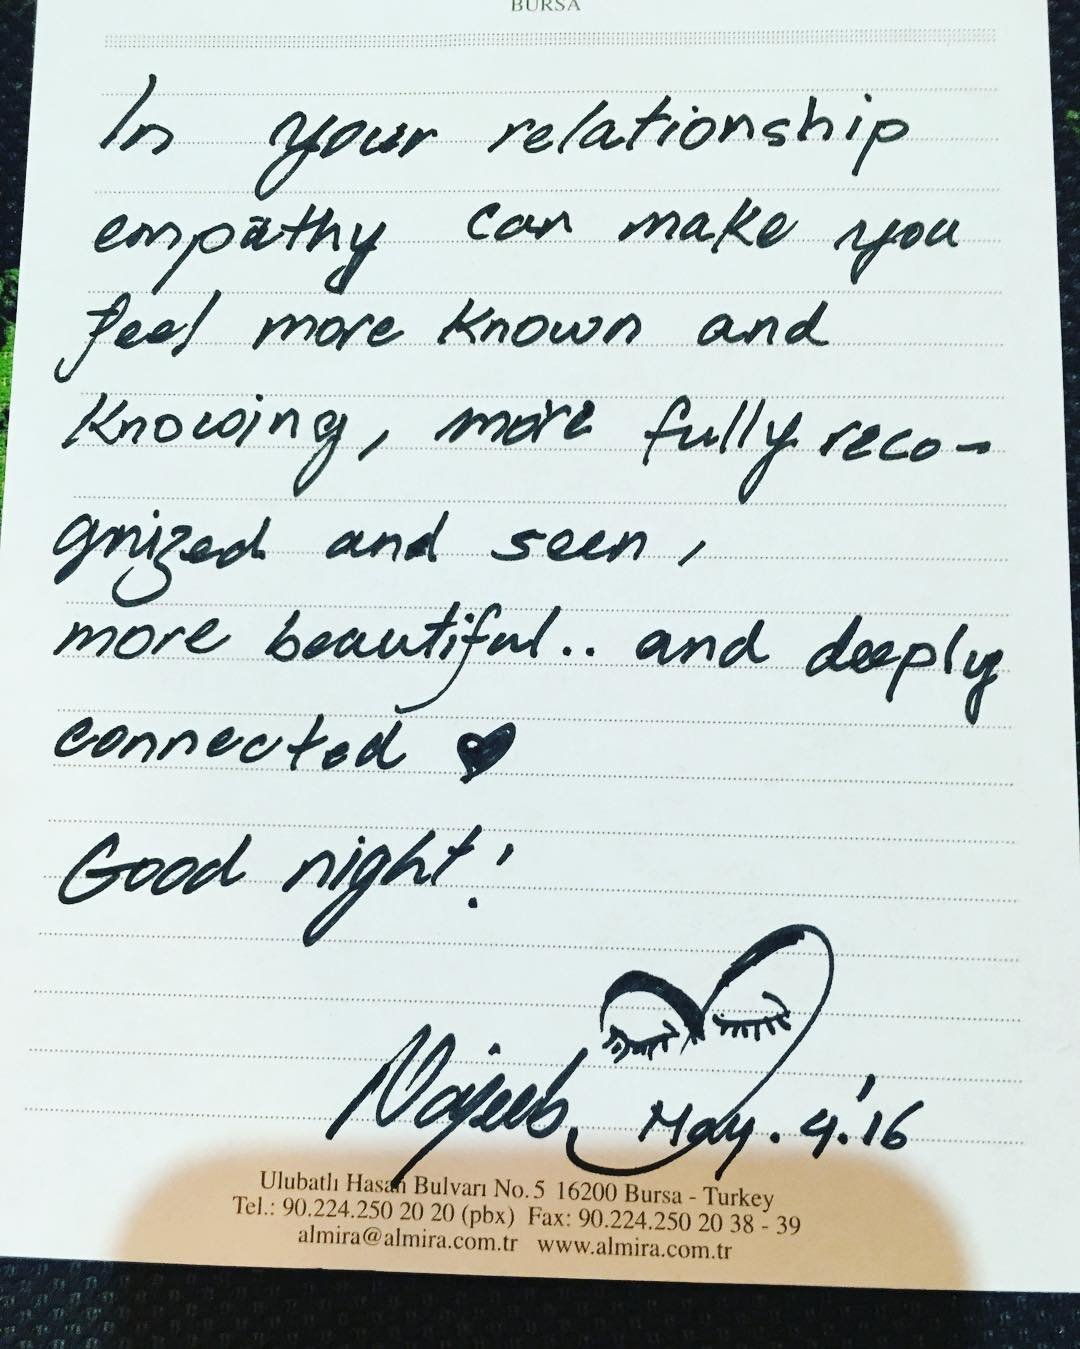 BURSA
In your relationship
empathy can make you
feel more known and
knowing, more fully reco-
gnized and seen,
more beautiful.. and deeply
connected ♥
Good night!
Najeeb May. 4.'16
Ulubatlı Hasan Bulvarı No.5 16200 Bursa - Turkey
Tel.: 90.224.250 20 20 (pbx) Fax: 90.224.250 20 38 - 39
almira@almira.com.tr www.almira.com.tr